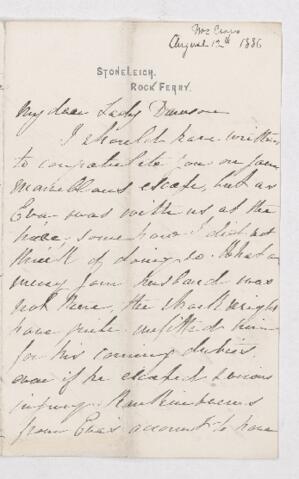 August 12th 1886
STONELEIGH,
ROCK FERRY.
My dear Lady Dawson
I should have written
to congratulate you on your
marvellous escape, but as
Eva was with us at the
some how I did not
think of doing so. What a
mercy your husband was
not there, the shock might
have quite unfitted him
for his coming duties,
even if he escaped serious
injury.
from Evas account to have